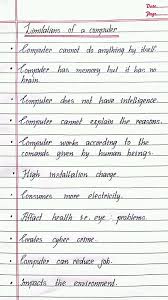 Date
Page
Limitations of a computer
• Computer cannot do anything by itself.
• Computer has memory but it has no
brain.
• Computer does not have intelligence.
• Computer cannot explain the reasons.
• Computer works according to the
comands given by human beings.
• High installation charge.
• Consumes more electricity.
• Affect health i.e. eye problems.
• Creates cyber crime.
• Computer can reduce job.
• Impacts the environment.